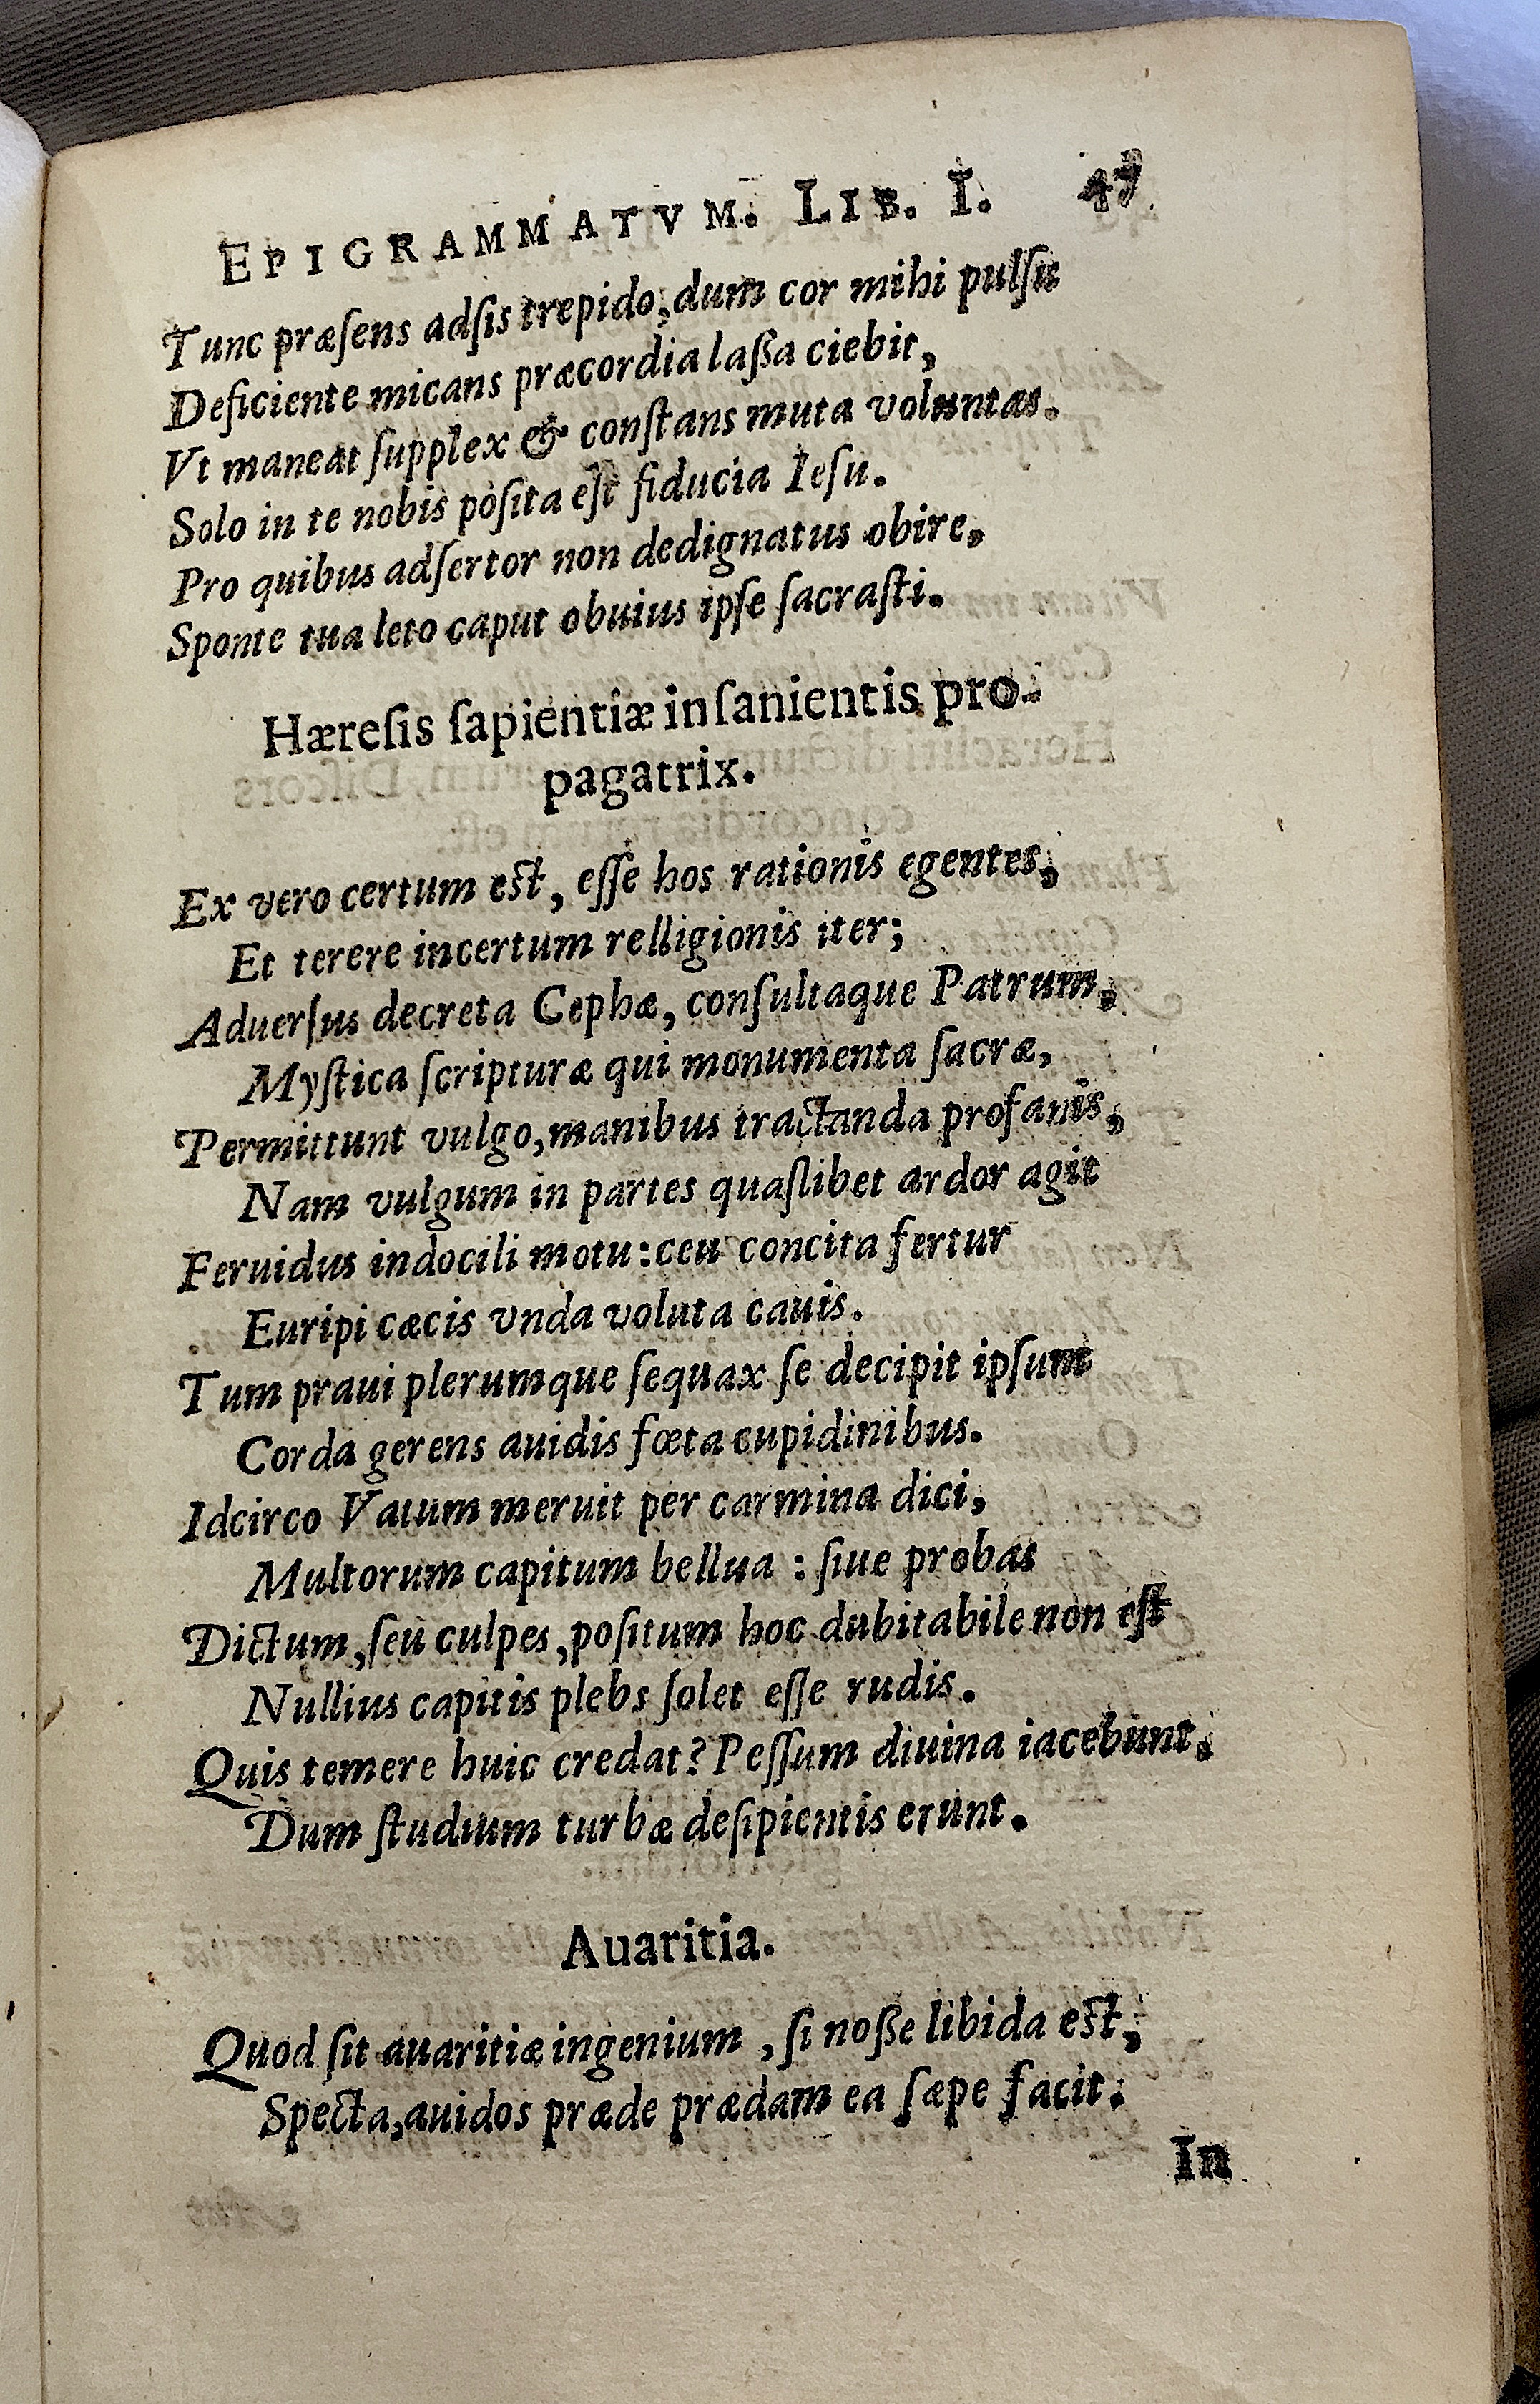 EPIGRAMMATVM. LIB. I.
Tunc præſens adſis trepido, dum cor mihi pulſu
Deficiente micans præcordia laßa ciebit,
Vt maneat ſupplex & conſtans muta voluntas.
Solo in te nobis poſita eſt fiducia Ieſu.
Pro quibus adſertor non dedignatus obire,
Sponte tua leto caput obuius ipſe ſacraſti.
Hæreſis ſapientiæ inſanientis pro-
pagatrix.
Ex vero certum est, eſſe hos rationis egentes,
Et terere incertum relligionis iter;
Aduerſus decreta Cephæ, conſultaque Patrum,
Myſtica ſcripturæ qui monumenta ſacræ,
Permittunt vulgo, manibus tractanda profanis,
Nam vulgum in partes quaſlibet ardor agit
Feruidus indocili motu: ceu concita fertur
Euripi cæcis vnda voluta cauis.
Tum praui plerumque ſequax ſe decipit ipſum
Corda gerens auidis fœta cupidinibus.
Idcirco Vatum meruit per carmina dici,
Multorum capitum bellua : ſiue probas
Dictum, ſeu culpes, poſitum hoc dubitabile non eſt
Nullius capitis plebs ſolet eſſe rudis.
Quis temere huic credat? Peſſum diuina iacebunt,
Dum ſtudium turbæ deſipientis erunt.
Avaritia.
Quod ſit auaritiæ ingenium, ſi noße libida est,
Specta, auidos præde prædam ea ſæpe facit.
In